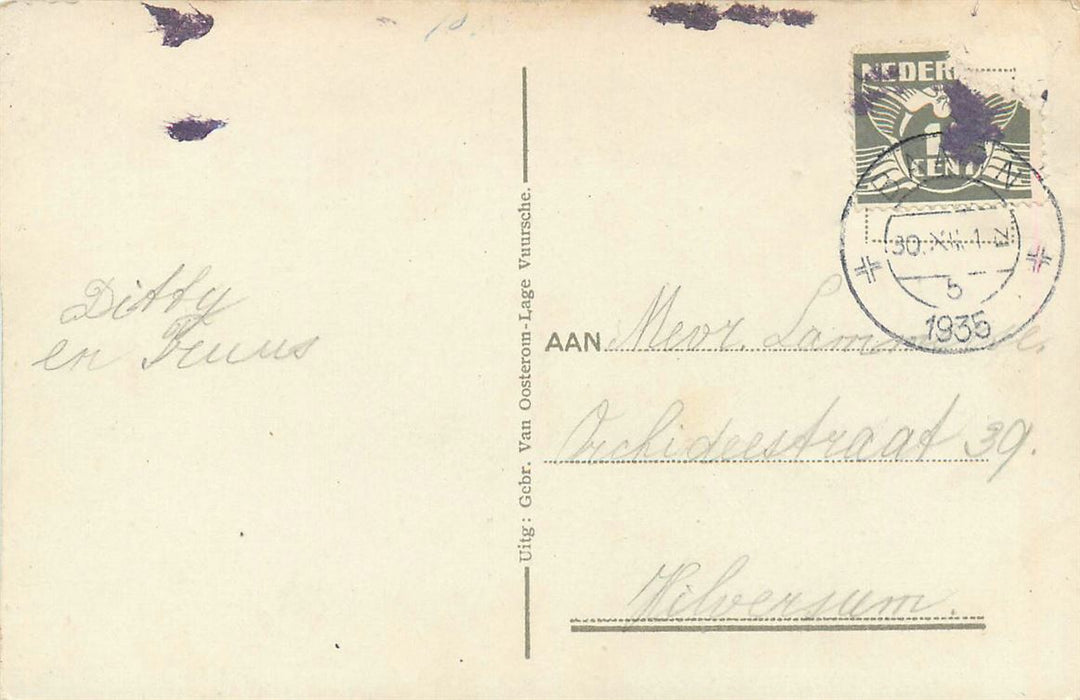 NEDER
1
CENT
30.XII 1
5
1935
Ditty
en
AAN Mevr.
Orchideestraat 39.
Hilversum.
Uitg: Gebr. Van Oosterom-Lage Vuursche.